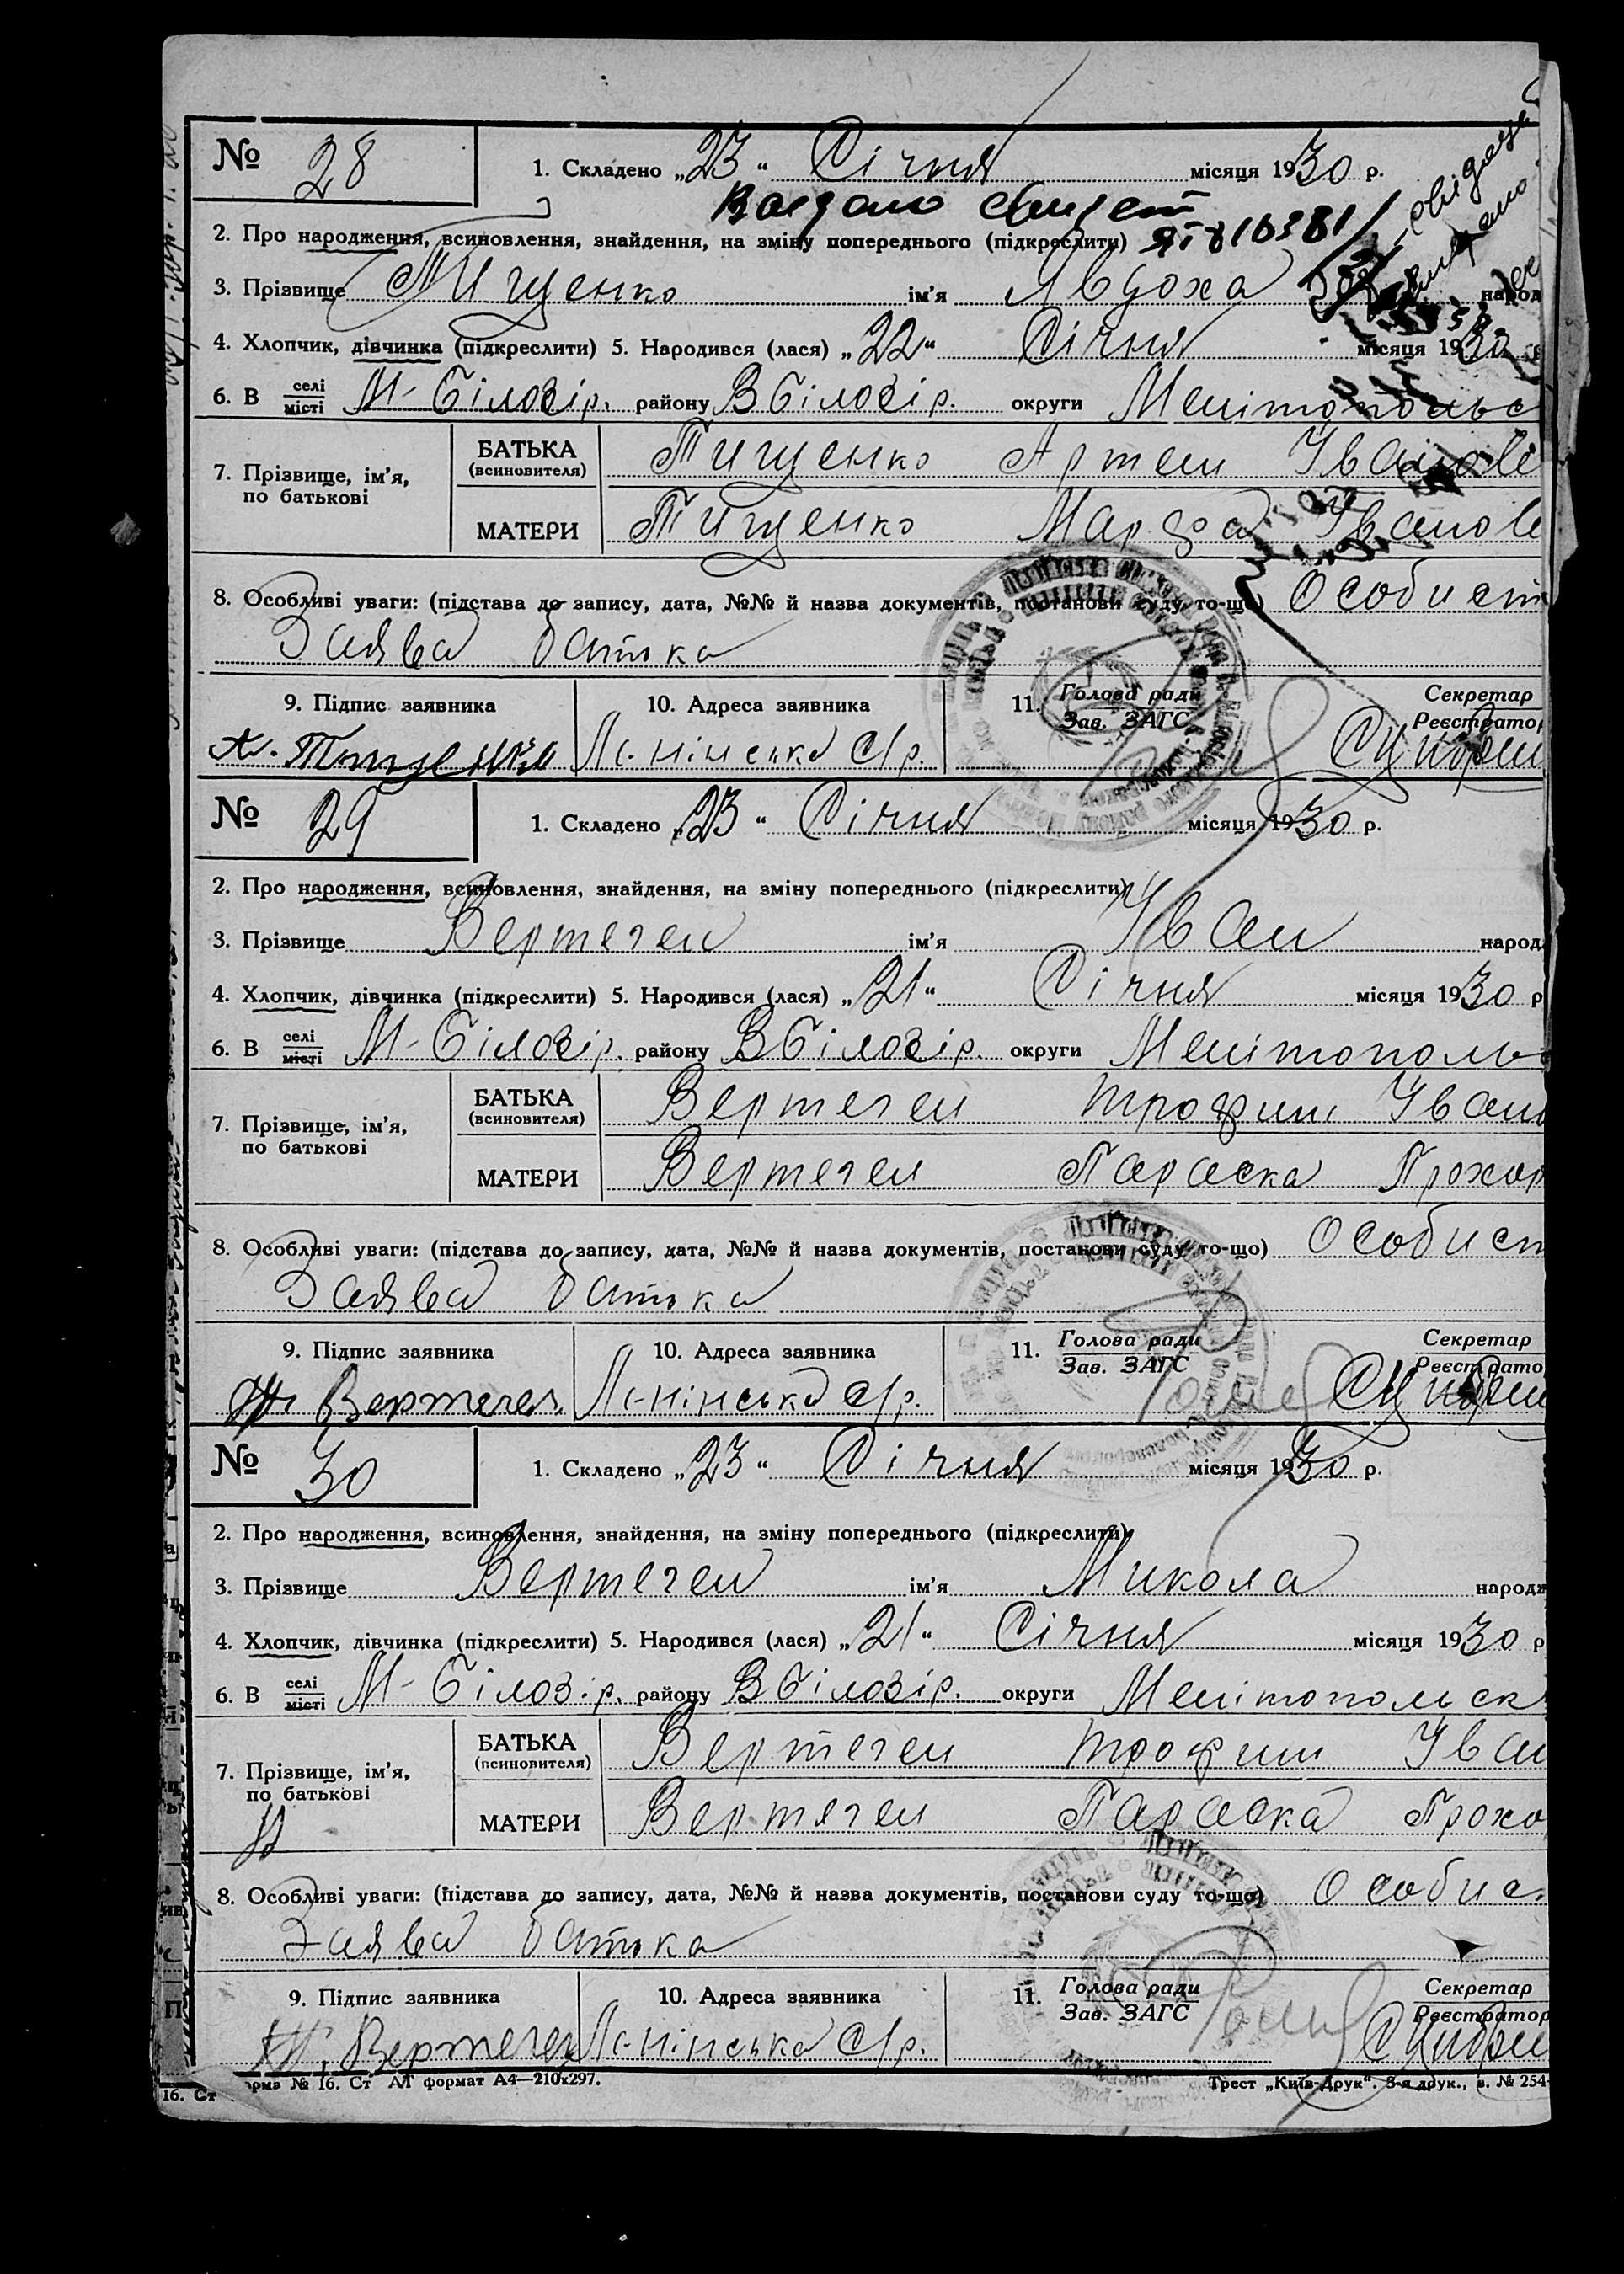 № 28
1. Складено „23“ Січня місяця 1930 р.
Видано свидет
2. Про народження, всиновлення, знайдення, на зміну попереднього (підкреслити)
3. Прізвище Тищенко ім'я Явдоха народ
4. Хлопчик, дівчинка (підкреслити) 5. Народився (лася) „22“ Січня місяця 1930
6. В селі місті М-Білозір. району ВБілозір. округи Мелітопольс
7. Прізвище, ім'я, по батькові
БАТЬКА (всиновителя) Тищенко Артем Іванов
МАТЕРИ Тищенко Іванов
8. Особливі уваги: (підстава до запису, дата, №№ й назва документів, постанови суду то-що) Особист
Заява батька
9. Підпис заявника 10. Адреса заявника 11. Голова ради Зав. ЗАГС Секретар Реєстратор
Ленінська с/р.
№ 29
1. Складено „23“ Січня місяця 1930 р.
2. Про народження, всиновлення, знайдення, на зміну попереднього (підкреслити)
3. Прізвище Вертегел ім'я Іван народ
4. Хлопчик, дівчинка (підкреслити) 5. Народився (лася) „21“ Січня місяця 1930 р
6. В селі місті М-Білозір. району ВБілозір. округи Мелітополь
7. Прізвище, ім'я, по батькові
БАТЬКА (всиновителя) Вертегел Трофим Іван
МАТЕРИ Вертегел Параска Прохор
8. Особливі уваги: (підстава до запису, дата, №№ й назва документів, постанови суду то-що) Особист
Заява батька
9. Підпис заявника 10. Адреса заявника 11. Голова ради Зав. ЗАГС Секретар Реєстрато
Т. Вертегел Ленінська с/р.
№ 30
1. Складено „23“ Січня місяця 1930 р.
2. Про народження, всиновлення, знайдення, на зміну попереднього (підкреслити)
3. Прізвище Вертегел ім'я Микола народж
4. Хлопчик, дівчинка (підкреслити) 5. Народився (лася) „21“ Січня місяця 1930 р
6. В селі місті М-Білозір. району ВБілозір. округи Мелітопольск
7. Прізвище, ім'я, по батькові
БАТЬКА (всиновителя) Вертегел Трофим Іван
МАТЕРИ Вертегел Параска Прохо
8. Особливі уваги: (підстава до запису, дата, №№ й назва документів, постанови суду то-що) Особис
Заява батька
9. Підпис заявника 10. Адреса заявника 11. Голова ради Зав. ЗАГС Секретар Реєстратор
Т. Вертегел Ленінська с/р.
орма № 16. Ст АТ формат А4—210x297. Трест „Київ-Друк“. 3-я друк., з. № 254
16. Ст